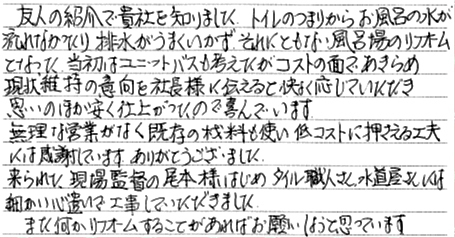 友人の紹介で貴社を知りました。トイレのつまりからお風呂の水が
流れなかったり排水がうまくいかず、それにともない風呂場のリフォーム
となった。当初はユニットバスも考えたがコストの面であきらめ
現状維持の意向を社長様に伝えると快く応じていただき
思いのほか安く仕上がったので喜んでいます。
無理な営業がなく既存の材料も使い低コストに押さえる工夫
には感謝しています。ありがとうございました。
来られた現場監督の尾本様はじめタイル職人さん、水道屋さんには
細かい心遣いで工事していただきました。
また何かリフォームすることがあればお願いしようと思っています